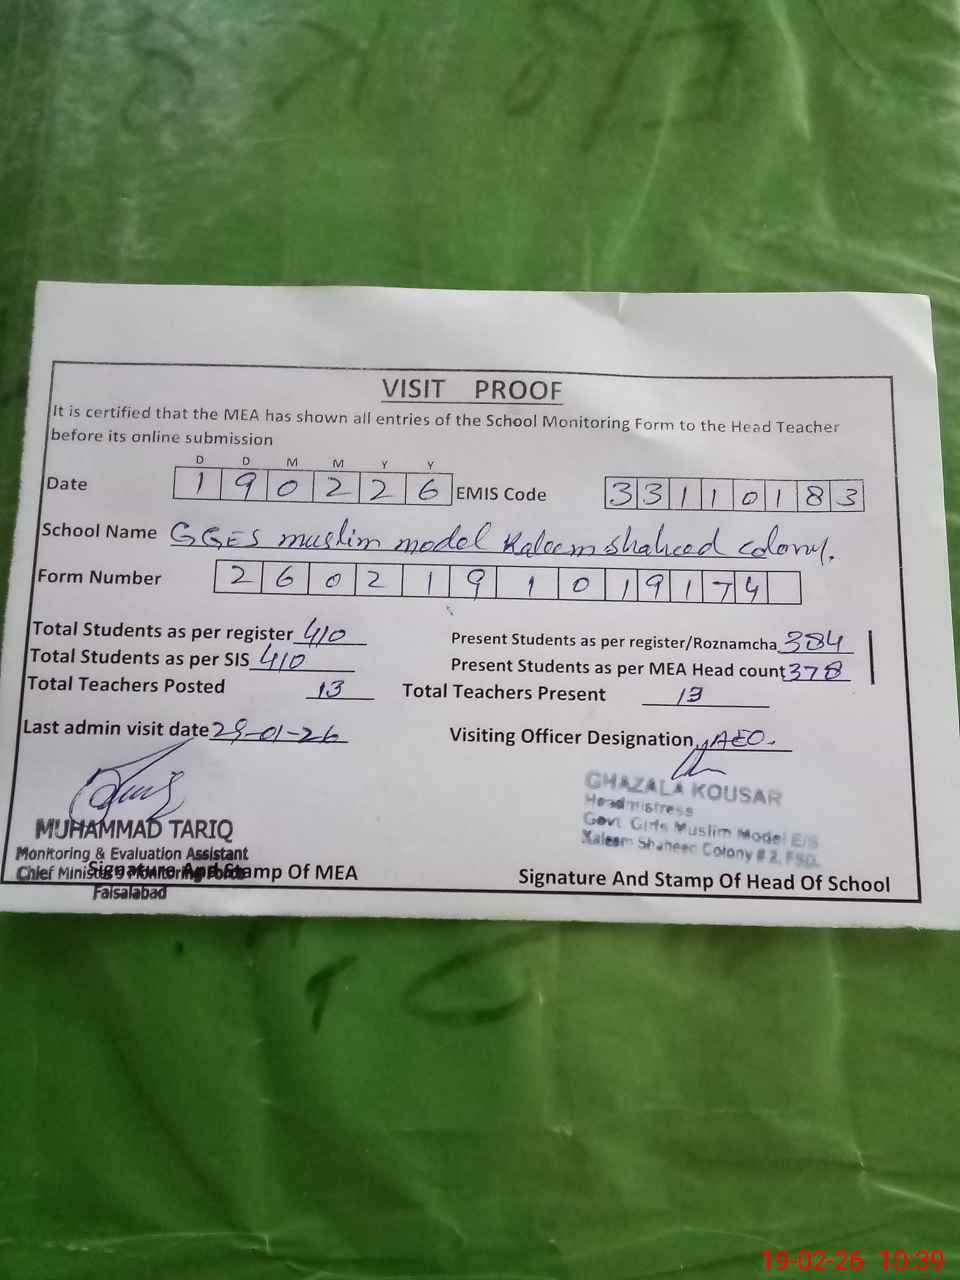 VISIT PROOF
It is certified that the MEA has shown all entries of the School Monitoring Form to the Head Teacher
before its online submission
D D M M Y Y
Date 1 9 0 2 2 6 EMIS Code 3 3 1 1 0 1 8 3
School Name GGES muslim model Kaleem shaheed colony.
Form Number 2 6 0 2 1 9 1 0 1 9 1 7 4
Total Students as per register 410 Present Students as per register/Roznamcha 384
Total Students as per SIS 410 Present Students as per MEA Head count 378
Total Teachers Posted 13 Total Teachers Present 13
Last admin visit date 29-01-26 Visiting Officer Designation AEO.
GHAZALA KOUSAR
Headmistress
Govt. Girls Muslim Model E/S
Kaleem Shaheed Colony # 2, FSD.
MUHAMMAD TARIQ
Monitoring & Evaluation Assistant
Chief Minister's Monitoring Force
Faisalabad
Signature And Stamp Of MEA Signature And Stamp Of Head Of School
19-02-26 10:39